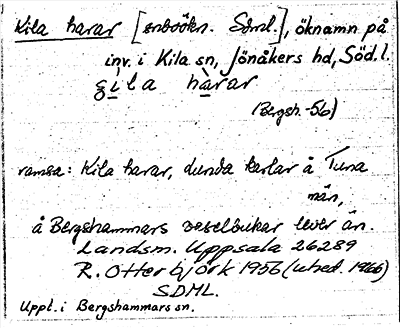 Kila harar [snbsökn. Sdml.], öknamn på
inv. i Kila sn, Jönåkers hd, Söd.l.
gila harar
(Bergsh.-56)
ramsa: Kila harar, dunda karlar å Tuna
män,
å Bergshammars veselbukar lever än.
Landsm. Uppsala 26289
R. Otterbjörk 1956 (utved. 1966)
SDML.
Uppt. i Bergshammars sn.